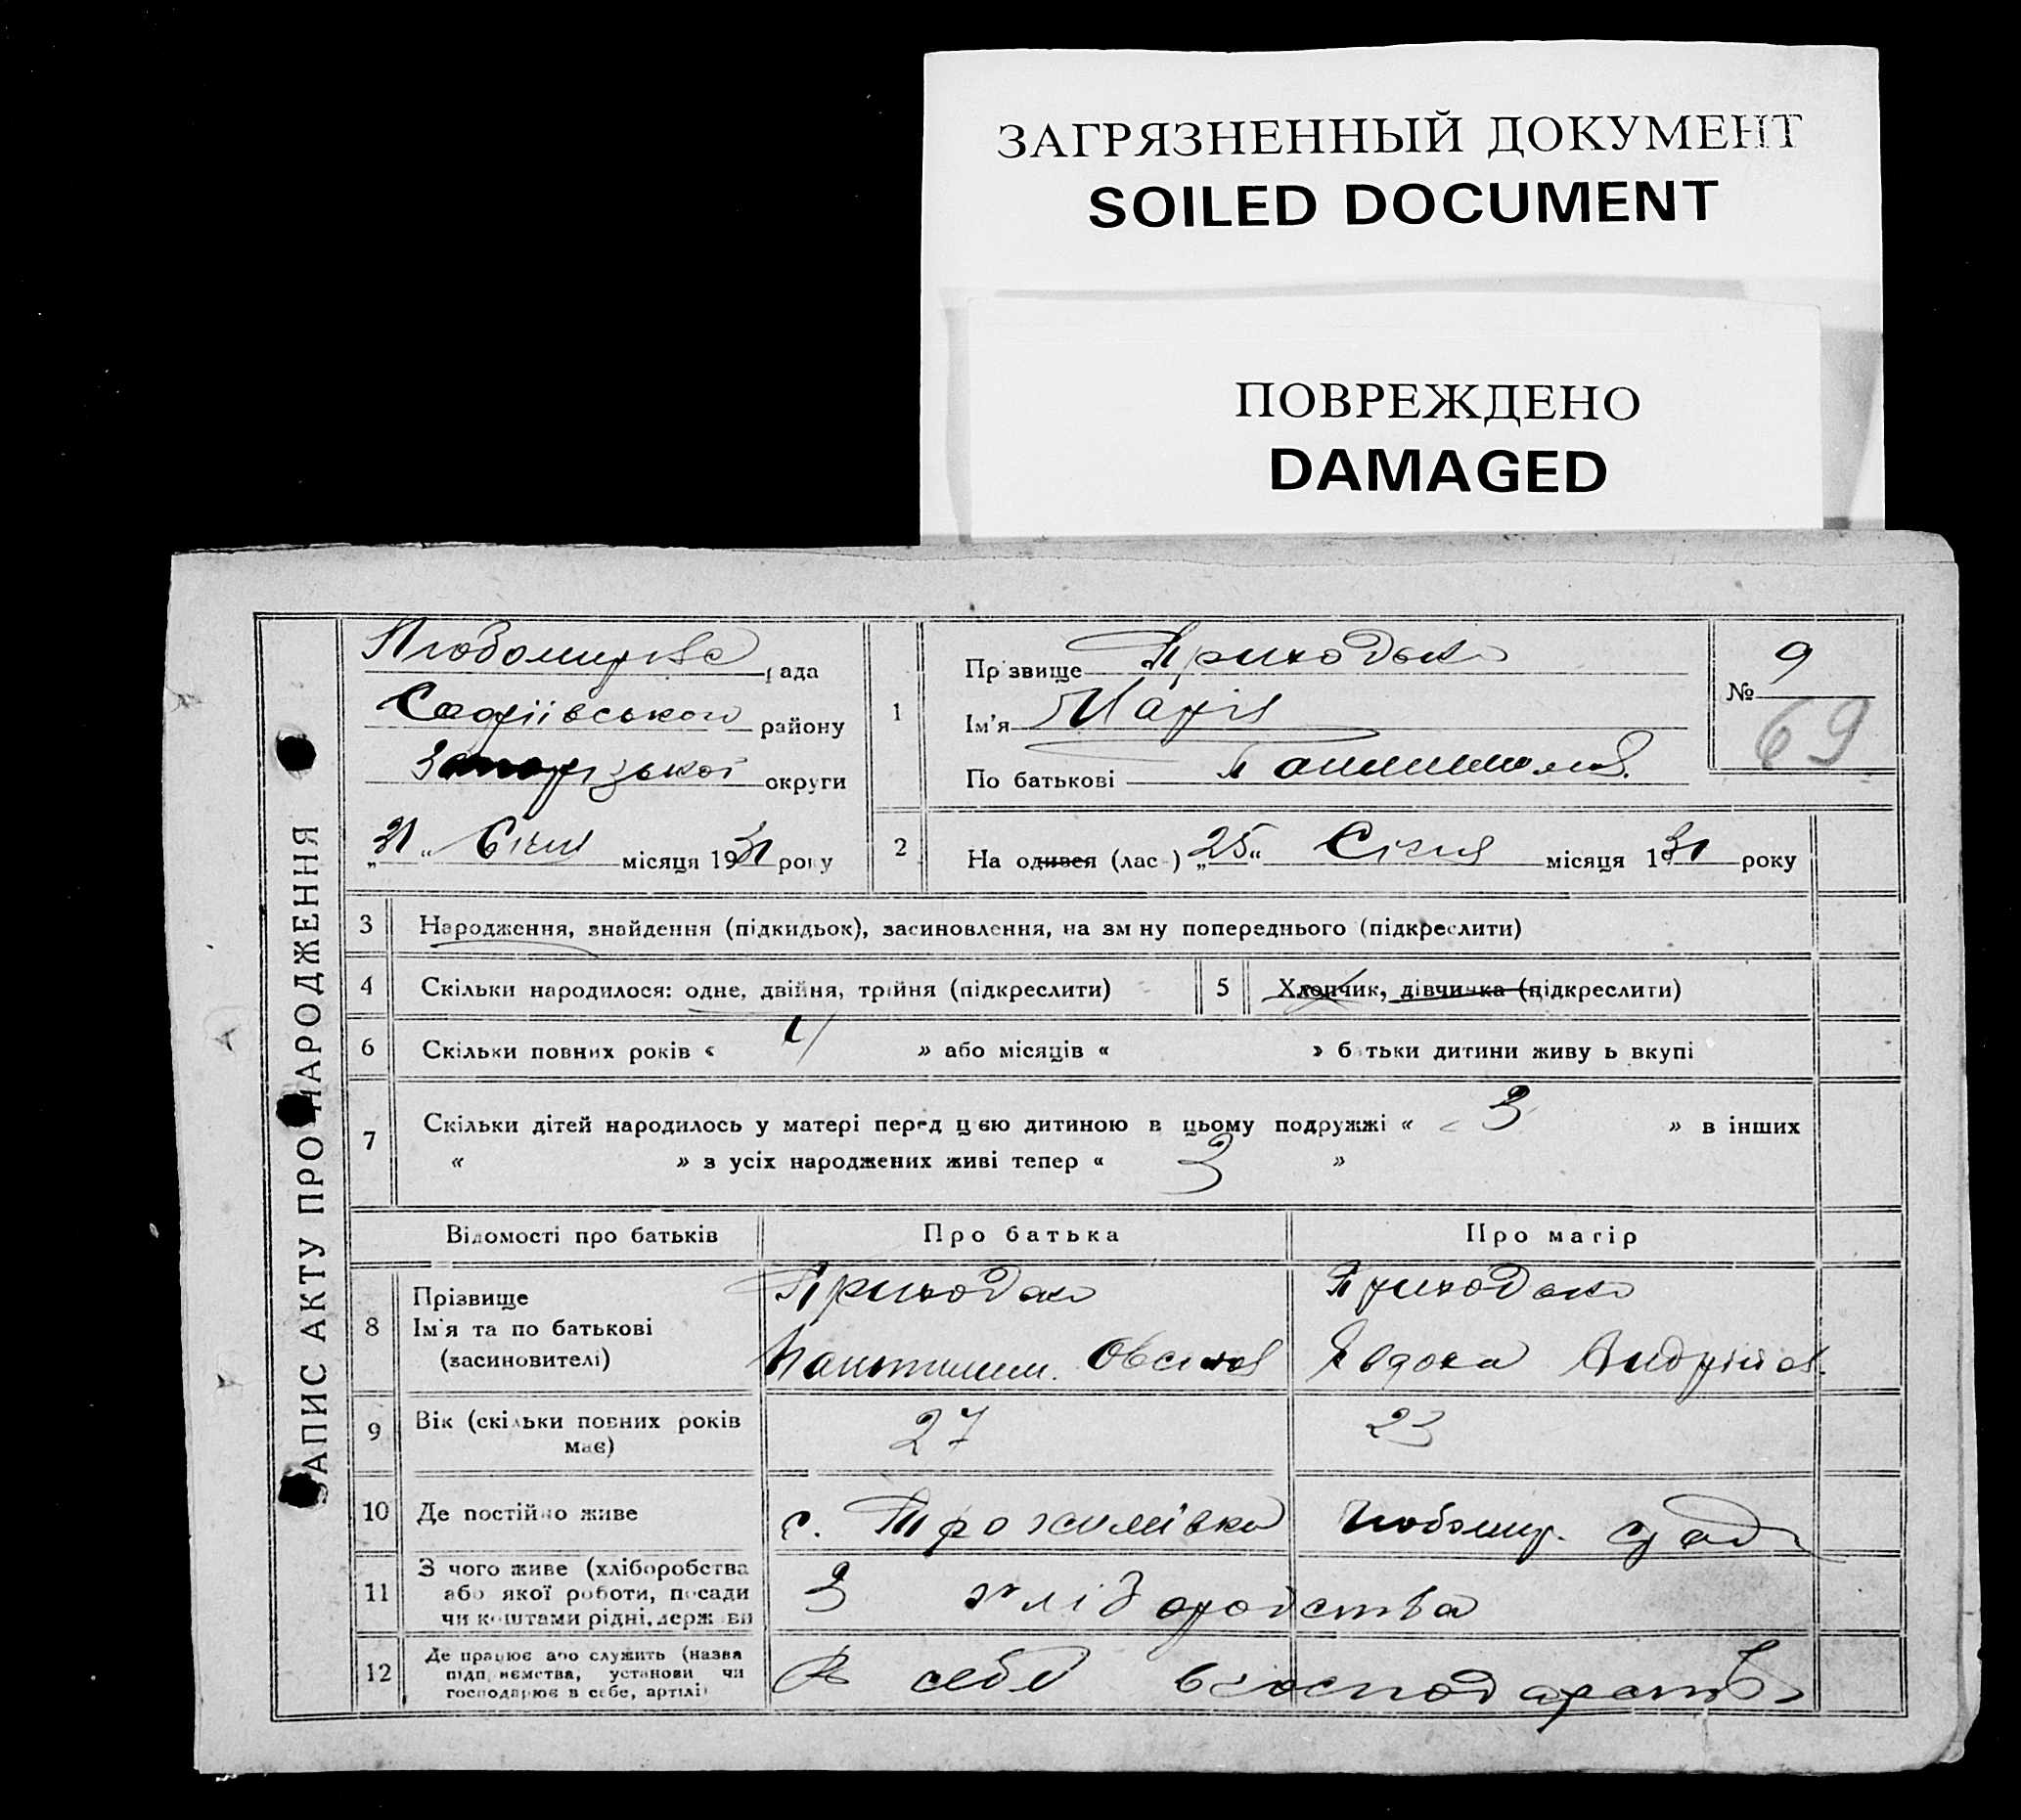 ЗАГРЯЗНЕННЫЙ ДОКУМЕНТ
SOILED DOCUMENT
ПОВРЕЖДЕНО
DAMAGED
ЗАПИС АКТУ ПРО НАРОДЖЕННЯ
рада
району
округи
„31“ Січня місяця 1931 року
1
Прізвище Приходько
Ім'я Марія
По батькові
№ 9
69
2
На одився (лас ) „25“ Січня місяця 1931 року
3 Народження, знайдення (підкидьок), засиновлення, на зм ну попереднього (підкреслити)
4 Скільки народилося: одне, двійня, трійня (підкреслити)
5 Хлопчик, дівчинка (підкреслити)
6 Скільки повних років « 4 » або місяців « » батьки дитини живу ь вкупі
7 Скільки дітей народилось у матері перед цією дитиною в цьому подружжі « 3 » в інших
« » з усіх народжених живі тепер « 3 »
Відомості про батьків Про батька Про матір
8 Прізвище
Ім'я та по батькові
(засиновителі)
Приходько
Приходько
Андрійов.
9 Вік (скільки повних років
має)
27 23
10 Де постійно живе с. Трохимівка Любомир. рад
11 З чого живе (хліборобства
або якої роботи, посади
чи коштами рідні, держ ви
З хліборобства
12 Де працює або служить (назва
підп иємства, установи чи
господарює в себе, артілі)
В себе в господарстві